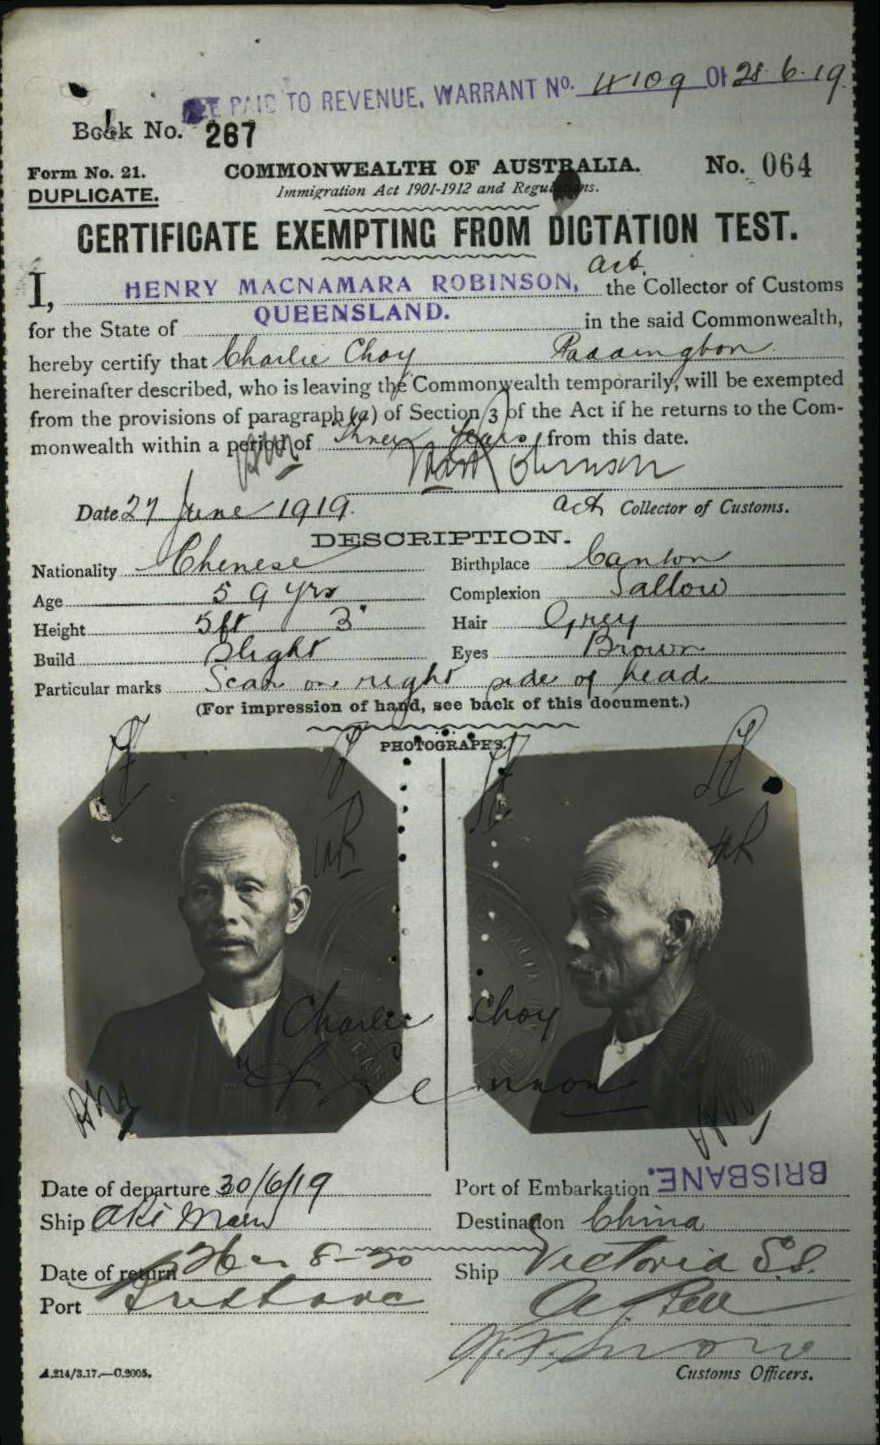 PAID TO REVENUE, WARRANT No. 4109 Of 28.6.19
Book No. 267
Form No. 21. COMMONWEALTH OF AUSTRALIA. No. 064
DUPLICATE. Immigration Act 1901-1912 and Regulations.
CERTIFICATE EXEMPTING FROM DICTATION TEST.
act.
I, HENRY MACNAMARA ROBINSON, the Collector of Customs
for the State of QUEENSLAND. in the said Commonwealth,
hereby certify that Charlie Choy Paddington
hereinafter described, who is leaving the Commonwealth temporarily, will be exempted
from the provisions of paragraph (a) of Section 3 of the Act if he returns to the Com-
monwealth within a period of three years from this date.
Robinson
Date 27 June 1919. act Collector of Customs.
DESCRIPTION.
Nationality Chinese Birthplace Canton
Age 59 yrs Complexion Sallow
Height 5ft 3" Hair Grey
Build Slight Eyes Brown
Particular marks Scar on right side of head
(For impression of hand, see back of this document.)
PHOTOGRAPHS.
Charlie Choy
Date of departure 30/6/19 Port of Embarkation BRISBANE.
Ship Aki Maru Destination China
Date of return 8-20 Ship Victoria S.S.
Port Brisbane
Customs Officers.
A.214/3.17.—C.2005.